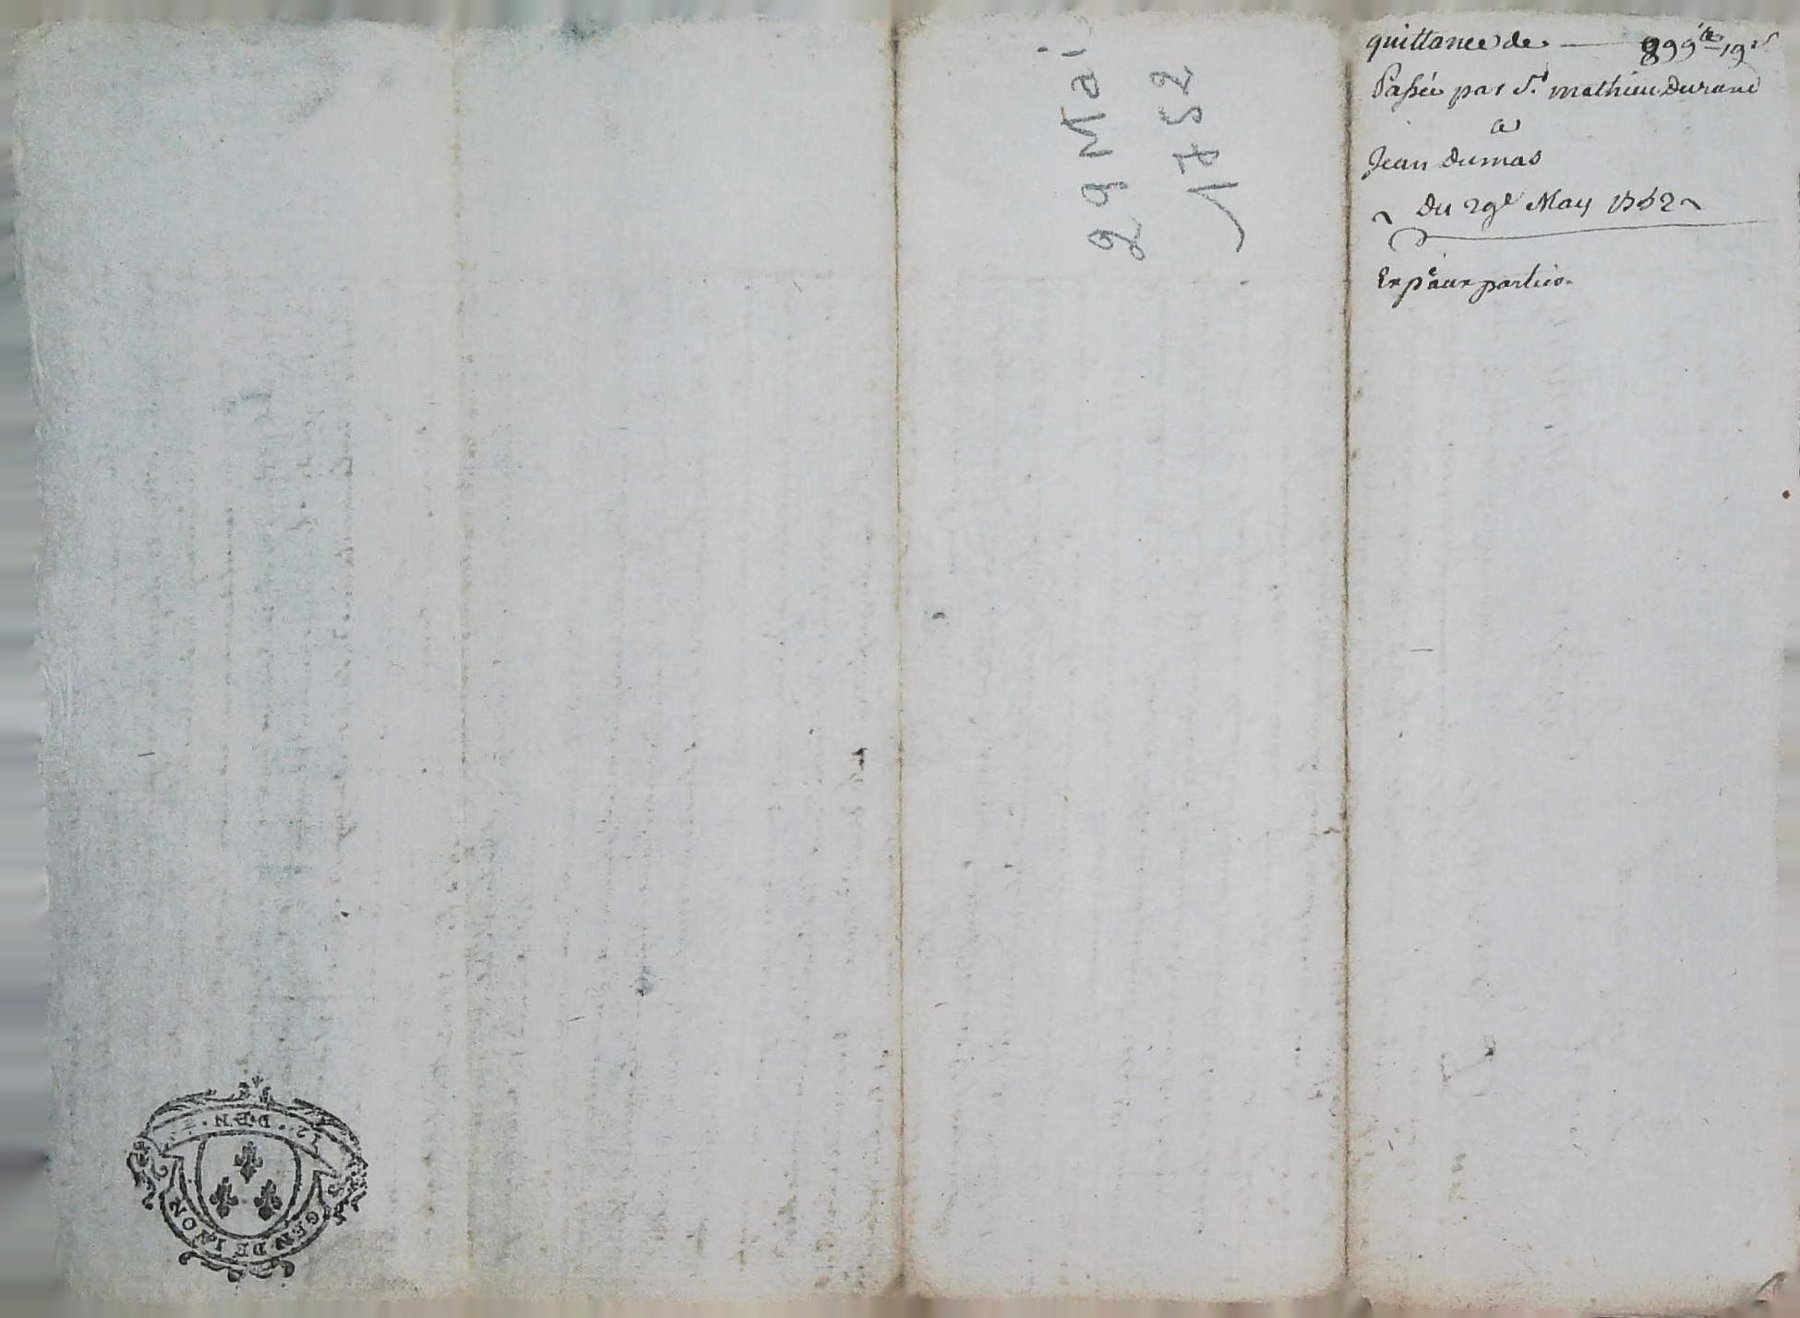 quittance de — 899ᵗᵗ 19ˢ
Passée par Sʳ mathieu Durand
a
Jean Dumas
Du 29ᵉ May 1752
Expᵉ aux parties
29 Mai
1752
12. D.EN.
GEN DE LYON